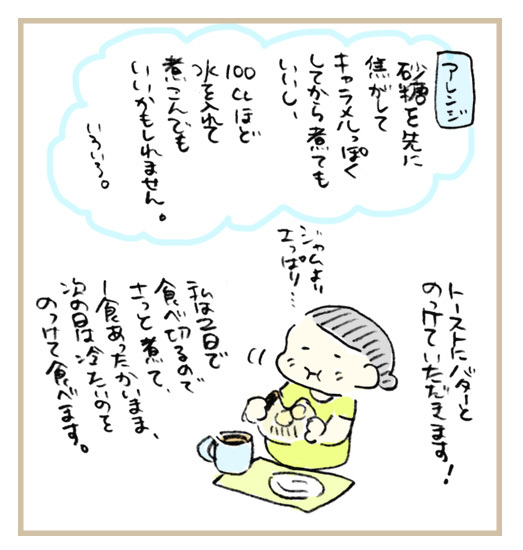 アレンジ
砂糖を先に
焦がして
キャラメルっぽく
してから煮ても
いいし、
100ccほど
水を入れて
煮こんでも
いいかもしれません。
いろいろ。
ジャムより
さっぱり…
トーストにバターと
のっけていただきます!
私は2日で
食べ切るので
さっと煮て、
1食あったかいまま、
次の日は冷たいのを
のっけて食べます。